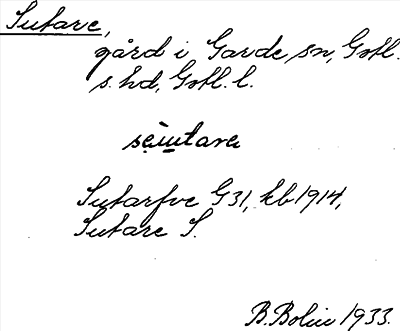 Sutare,
gård i Garde sn, Gotl.
s. hd, Gotl. l.
Sutarfve G31, kb 1914,
Sutare S.
B. Bolin 1933.